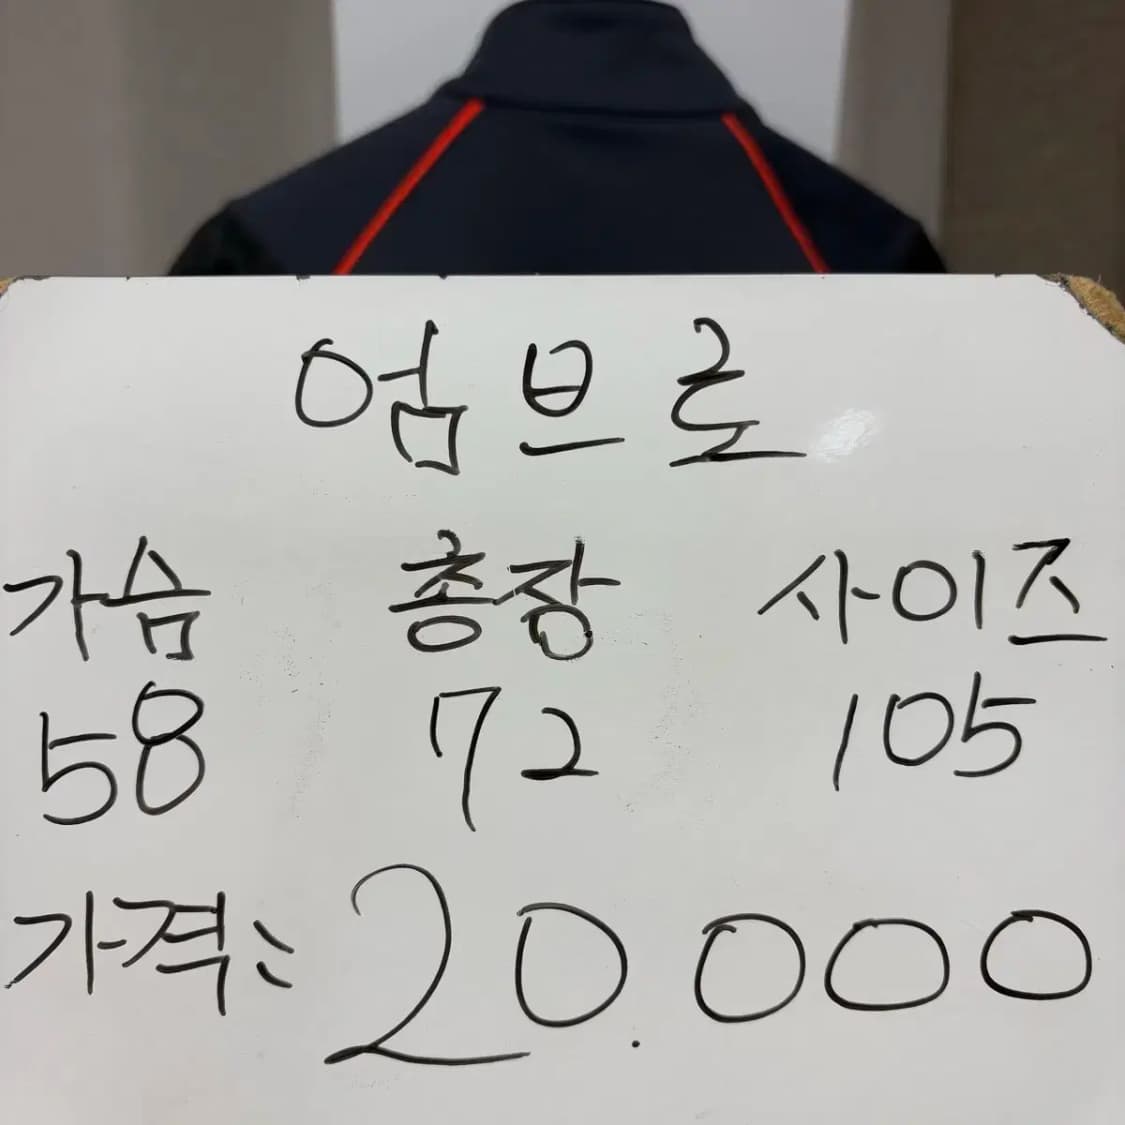 엄브로
가슴 총장 사이즈
58 72 105
가격: 20.000